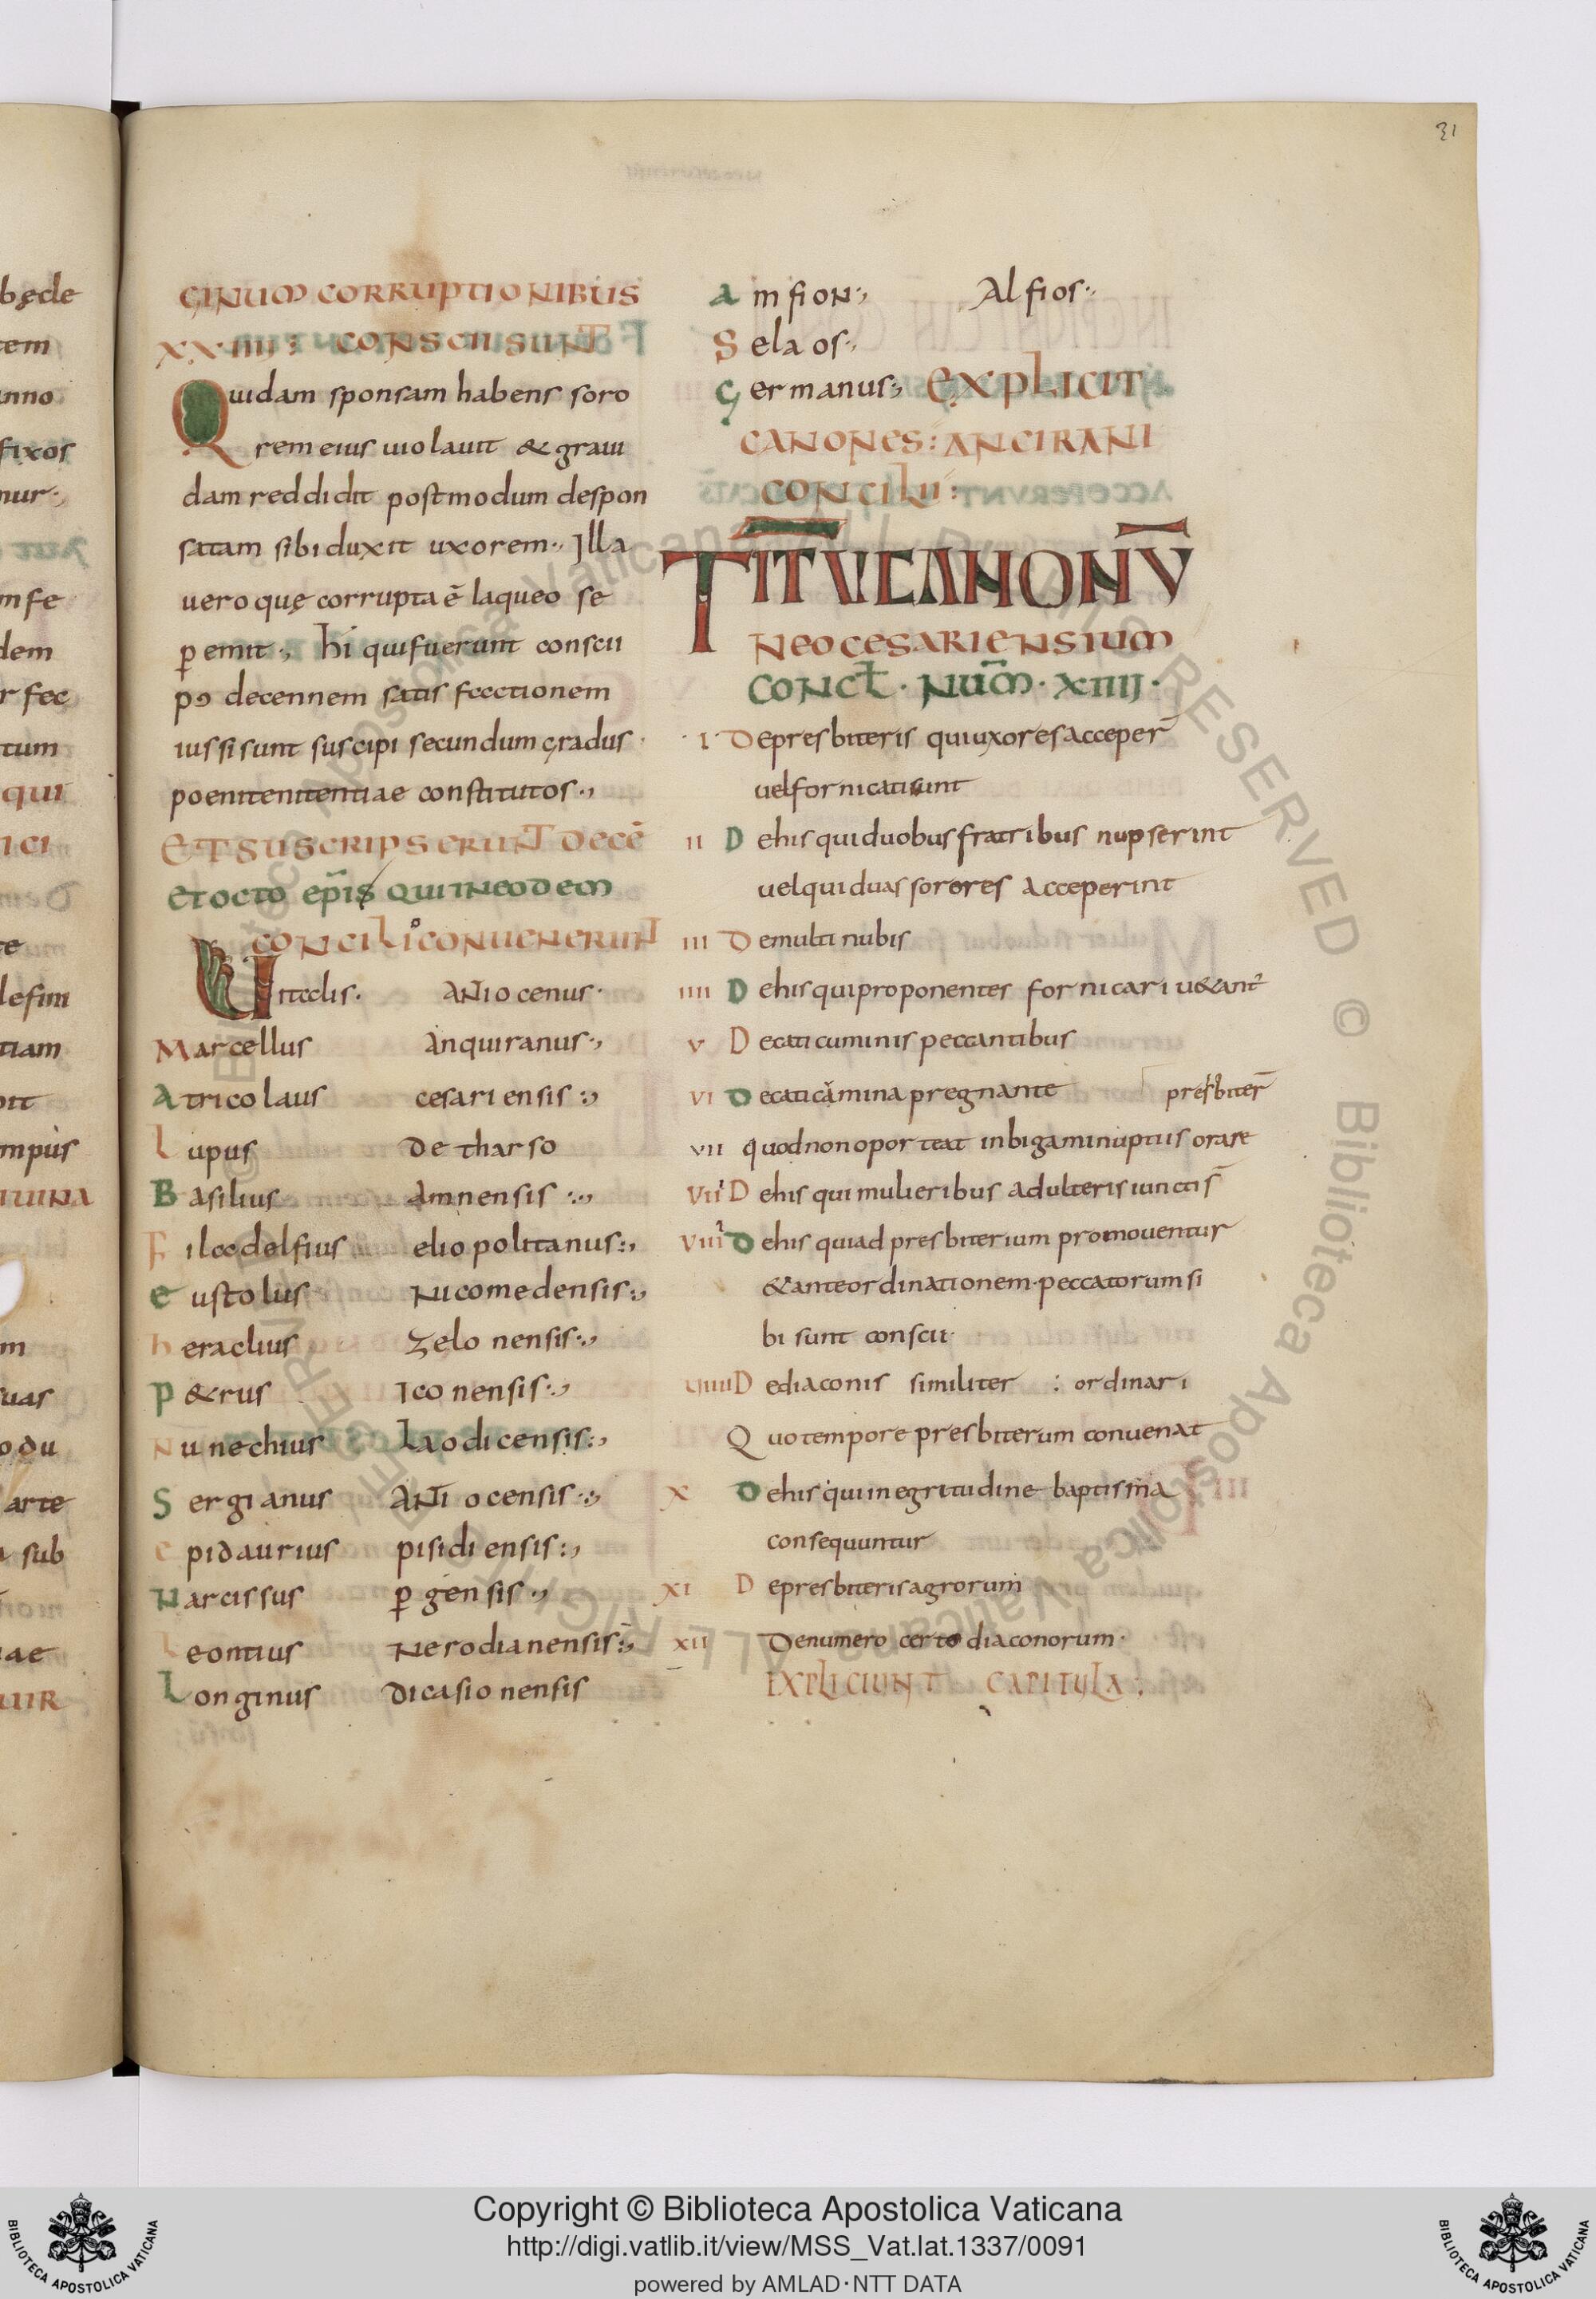 31
GINUM CORRUPTIONIBUS
XXIIII: CONSCII SUNT
Quidam sponsam habens soro
rem eius uiolauit & graui
dam reddidit postmodum despon
satam sibi duxit uxorem·, Illa
uero quę corrupta ē laqueo se
ꝑemit·, hi qui fuerunt conscii
pꝯ decennem satisfactionem
iussi sunt suscipi secundum gradus
poenitenitentiae constitutos·,
ET SUSCRIPSERUNT DECĒ
ET OCTO EP̄IS QUI IN EODEM
CONCILIO CONUENERUNT
Uitalis· ANTiocenus·
Marcellus Anquiranus·,
Atricolaus cesariensis:,
Lupus de tharso
Basilius Amnensis:,
Filadelfius eliopolitanus:,
Eustolus Nicomedensis:,
heraclius Zelonensis:,
P&rus Iconensis·,
Nunechius Laodicensis:,
Sergianus ANTiocensis·:,
epidaurius pisidiensis:,
Narcissus ꝑgensis·,
Leontius Nerodianensis:,
Longinus dicasionensis
Amfion:, Alfios:,
Selaos·,
Germanus:, EXPLICIT
CANONES: ANCIRANI
CONCILII:
TĪTU CANONŪ
NEOCESARIENSIUM
CONCŁ· NUM̄· XIIII·
I De presbiteris qui uxores acceper̄
uel fornicati sunt
II De his qui duobus fratribus nupserint
uel qui duas sorores acceperint
III De multinubis
IIII De his qui proponentes fornicari u&ant᷑
V De caticuminis peccantibus
VI De caticamina pregnante presbiter̄
VII quod non oporteat in bigami nuptiis orare
VIII De his qui mulieribus adulteris iunctis̄
VIIII De his qui ad presbiterium promouentur
& ante ordinationem· peccatorum si
bi sunt conscii·
VIIII De diaconis similiter : ordinari
Quo tempore presbiterum conuenat
X De his qui in egritudine baptisma
consequuntur
XI De presbiteris agrorum
XII De numero certo diaconorum·
EXPLICIUNT CAPITULA:
Copyright © Biblioteca Apostolica Vaticana
http://digi.vatlib.it/view/MSS_Vat.lat.1337/0091
powered by AMLAD·NTT DATA
BIBLIOTECA APOSTOLICA VATICANA
BIBLIOTECA APOSTOLICA VATICANA